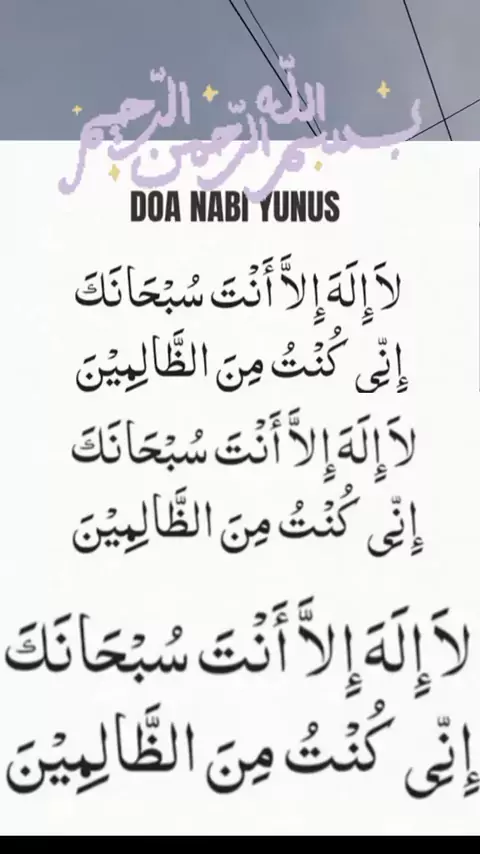 بسم الله الرحمن الرحيم
DOA NABI YUNUS
لاَ إِلَهَ إِلاَّ أَنْتَ سُبْحَانَكَ
إِنِّي كُنْتُ مِنَ الظَّالِمِيْنَ
لاَ إِلَهَ إِلاَّ أَنْتَ سُبْحَانَكَ
إِنِّي كُنْتُ مِنَ الظَّالِمِيْنَ
لاَ إِلَهَ إِلاَّ أَنْتَ سُبْحَانَكَ
إِنِّي كُنْتُ مِنَ الظَّالِمِيْنَ